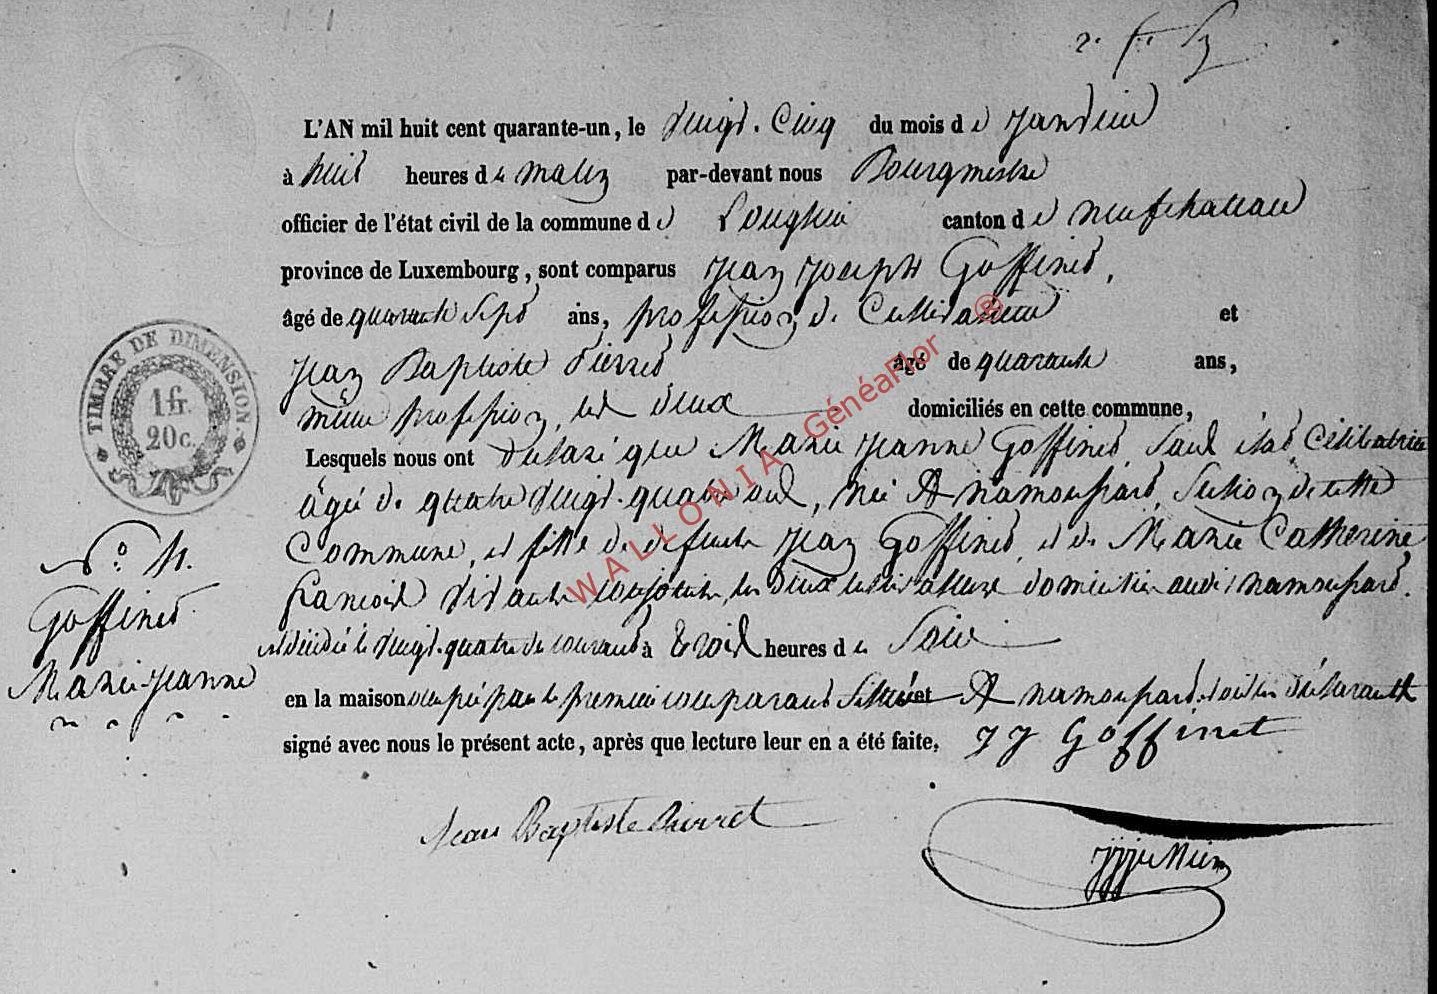 L'AN mil huit cent quarante-un, le vingt-Cinq du mois de Janvier
à huit heures du matin par-devant nous Bourgmestre
officier de l'état civil de la commune de Longlier canton de neufchateau
province de Luxembourg, sont comparus Jean Joseph Goffinet,
âgé de quarante sept ans, profession de Cultivateur et
Jean Baptiste Pierret âgé de quarante ans,
même profession, les deux domiciliés en cette commune,
Lesquels nous ont déclaré que Marie Jeanne Goffinet, Sans état, Célibataire
âgée de quatre vingt-quatre ans, née A namoussart, Section de cette
Commune, et fille de défunts Jean Goffinet, et de Marie Catherine
francois vivants conjoints, les deux cultivateurs domiciliés audit namoussart.
est décédée le vingt-quatre du courant à trois heures du Soir
en la maison occupée par le premier comparant Située et A namoussart. et ont les déclarants
signé avec nous le présent acte, après que lecture leur en a été faite. J J Goffinet
Jean Baptiste Pierret
N° 4.
Goffinet
Marie-Jeanne
TIMBRE DE DIMENSION
1 fr.
20 c.
WALLONIA GénéaFlor ®